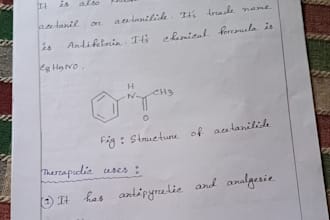 It is also
acetanil or acetanilide. It's trade name
is Antifebrin. It's chemical formula is
C8H9NO.
H
N
CH3
O
Fig : Structure of acetanilide
Therapudic uses :
① It has antipyretic and analgesic